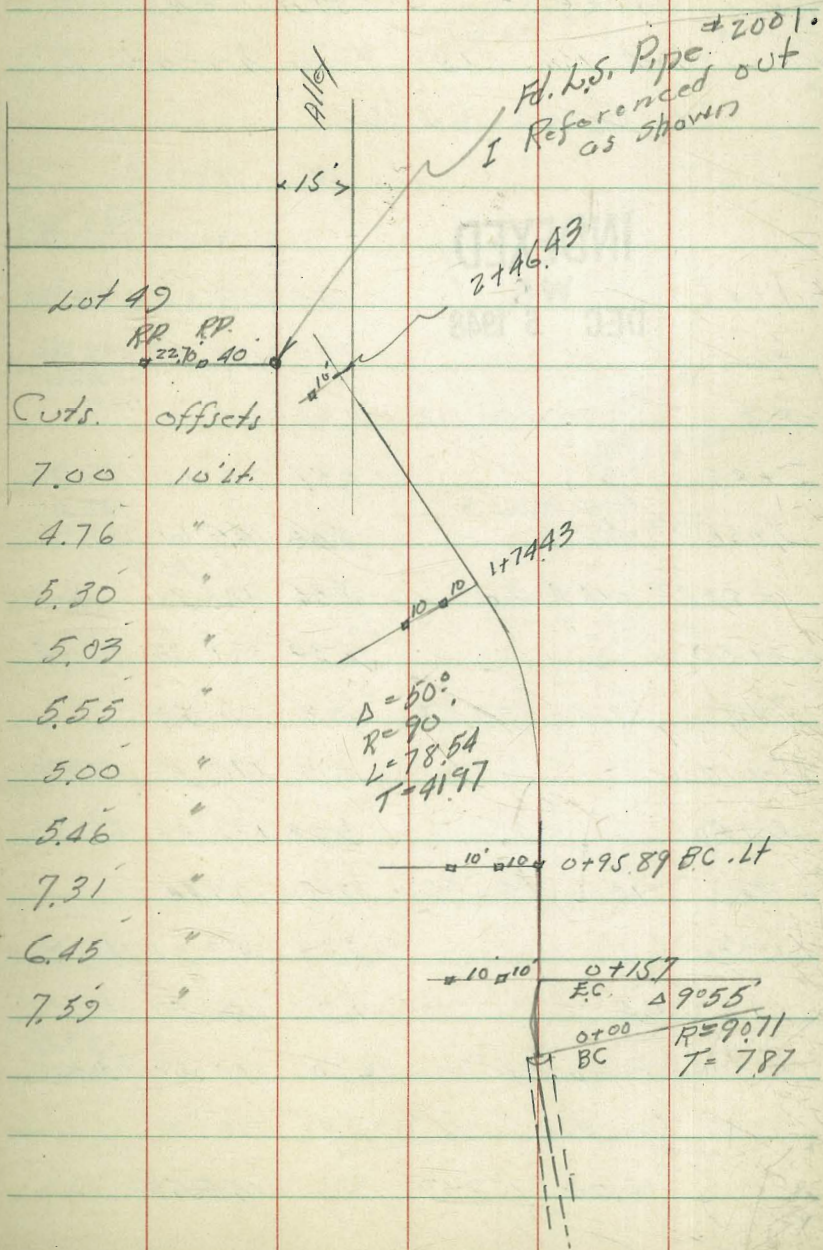 #2001.
Fd. L.S. Pipe
I Referenced out
as shown
Alley
15'
2+46.43
Lot 49
R.P. R.P.
22.70 40
10'
Cuts. offsets
7.00 10' Lt.
4.76 "
5.30 "
5.03 "
5.55 "
5.00 "
5.46 "
7.31 "
6.45 "
7.59 "
1+74.43
10 10
Δ = 50°
R = 90
L = 78.54
T = 41.97
10' 10 0+95.89 B.C. Lt
10' 10' 0+15.7
E.C. Δ 9°55'
0+00 R = 90.71
BC T = 7.87
INDEXED
DEC 1948